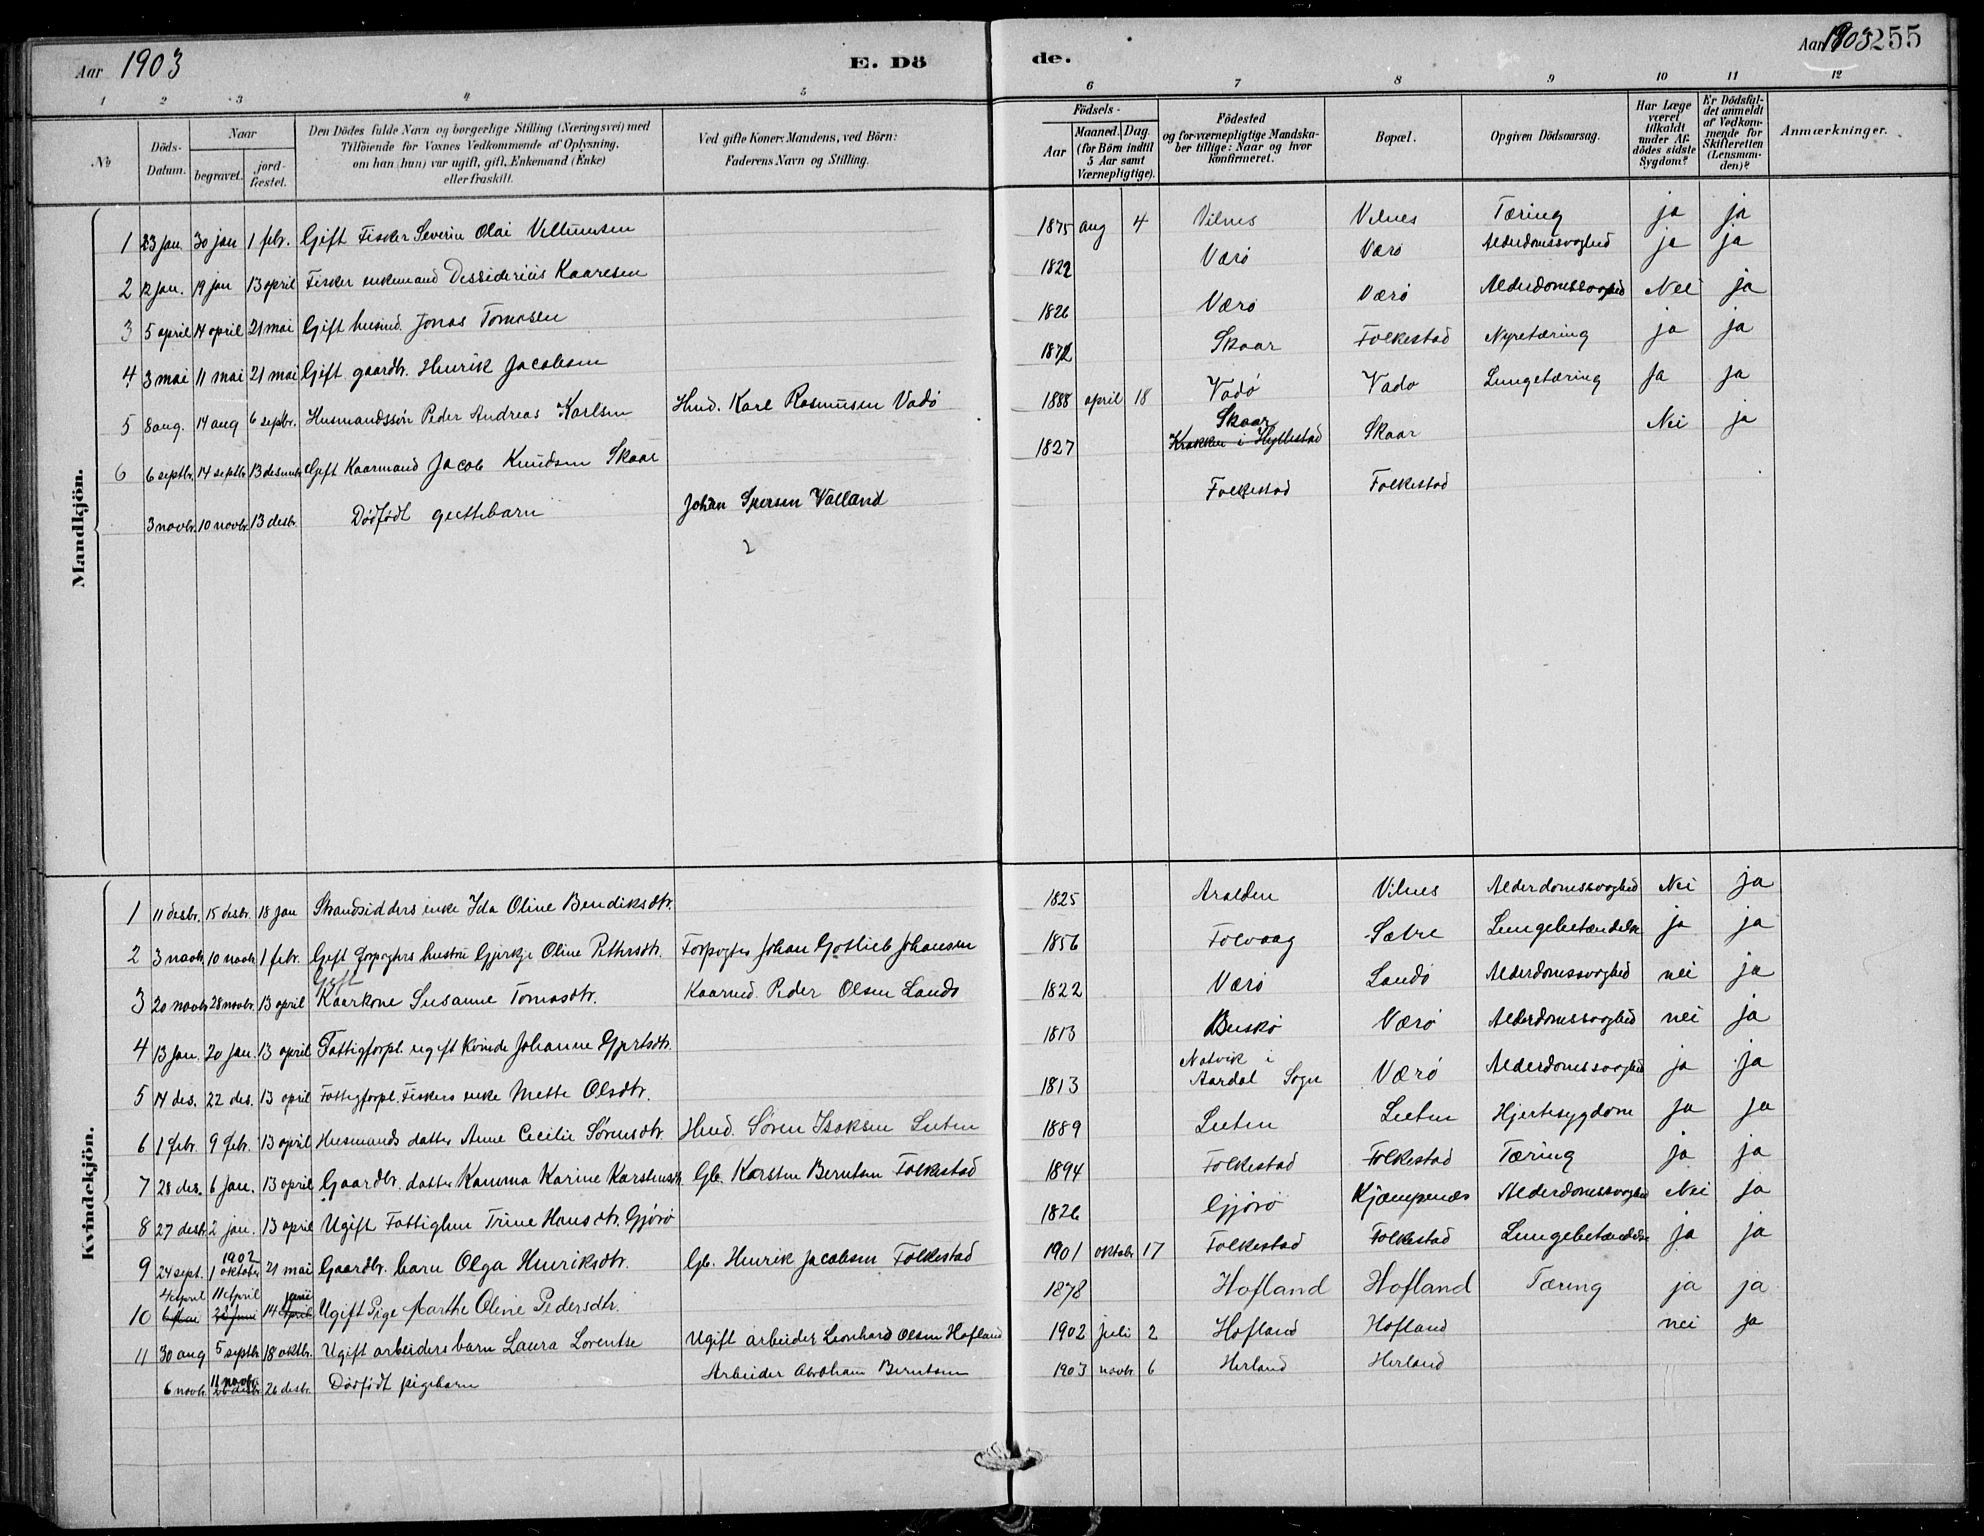 Aar 1903
E. Dö de.
Aar 1903 255
1 2 3 4 5 6 7 8 9 10 11 12
No
Döds-Datum.
Naar
begravet.
jord-fæstet.
Den Dödes fulde Navn og borgerlige Stilling (Næringsvei) med
Tilföiende for Voxnes Vedkommende af Oplysning,
om han (hun) var ugift, gift, Enkemand (Enke)
eller fraskilt.
Ved gifte Koner: Mandens, ved Börn:
Faderens Navn og Stilling.
Födsels-
Aar
Maaned. Dag.
(for Börn indtil
5 Aar samt
Værnepligtige).
Födested
og for værnepligtige Mandska-
ber tillige: Naar og hvor
konfirmeret.
Bopæl.
Opgiven Dödsaarsag.
Har Læge
været
tilkaldt
under Af-
dödes sidste
Sygdom?
Er Dödsfal-
det anmeldt
af Vedkom-
mende for
Skifteretten
(Lensman-
den)?
Anmærkninger.
Mandkjön.
1 23 jan. 30 jan 1 febr. Gift Fisker Severin Olai Villumsen 1875 aug 4 Vilnes Vilnes Tæring ja ja
2 12 jan. 19 jan 13 april Fisker enkemand Dessiderius Kaaresen 1822 Værø Værø Alderdomssvaghed ja ja
3 5 april 14 april 21 mai Gift husmd. Jonas Tomasen 1826 Værø Værø Alderdomssvaghed Nei ja
4 3 mai 11 mai 21 mai Gift gaardbr. Henrik Jacobsen 1872 Skaar Folkestad Nyretæring ja ja
5 8 aug. 14 aug 6 septbr. Husmandssøn Peder Andreas Karlsen Husmd. Karl Rasmusen Vadø 1888 april 18 Vadø Vadø Lungetæring Ja ja
6 6 septbr. 14 septbr 13 desembr Gift Kaarmand Jacob Knudsen Skaar 1827 Skaar Krakken i Hyllestad Skaar Nei ja
3 novbr. 10 novbr. 13 desbr. Dødfødt guttebarn Johan Valland Folkestad Folkestad
2
Kvindekjön.
1 11 desbr. 15 desbr. 18 jan Strandsidders enke Ida Oline Bendiksdtr. 1825 Aralden Vilnes Alderdomssvaghed Nei ja
2 3 novbr 10 novbr 1 febr. Gift forpagters hustru Gjertje Oline Pettersdtr. Forpagter Johan Gotlieb Johansen 1856 Folvaag Sætre Lungebetændelse ja ja
Gift
3 20 novbr 28 novbr. 13 april Kaarkone Susanne Tomasdtr. Kaarmd. Peder Olsen Landø 1822 Værø Landø Alderdomssvaghed nei ja
4 13 jan. 20 jan. 13 april Fattigforpl. ugift Kvinde Johanne Gjertsdtr. 1813 Buskø Værø Alderdomssvaghed nei ja
5 14 des. 22 des. 13 april Fattigforpl. Fiskers enke Mette Olsdtr. 1813 Natvik i Aardal Sogn Værø Alderdomssvaghed ja ja
6 1 febr. 9 febr. 13 april Husmands datter Anne Cecilie Sørensdtr. Husmd. Søren Isaksen Leeten 1889 Leeten Leeten Hjertesygdom Ja ja
7 28 des. 6 jan. 13 april Gaardbr. datter Kamma Karine Karstensdtr. Gb. Karsten Berntsen Folkestad 1894 Folkestad Folkestad Tæring ja ja
8 27 desbr 2 jan. 13 april Ugift Fattiglem Trine Hansdtr. Gjørø 1826 Gjørø Kjæmpenæs Alderdomssvaghed Nei ja
9 24 sept. 1902 1 oktober 21 mai Gaardbr. barn Olga Henriksdtr. Gb. Henrik Jacobsen Folkestad 1901 oktobr 17 Folkestad Folkestad Lungebetændelse ja ja
4 April 11 April juni
10 28 juni 14 april Ugift Pige Marthe Oline Pedersdtr. 1878 Hofland Hofland Tæring ja ja
11 30 aug 5 septbr 18 oktbr. Ugift arbeiders barn Laura Lorentse Ugift arbeider Leonhard Olsen Hofland 1902 juli 2 Hofland Hofland nei ja
11 novbr.
6 novbr 26 desbr. Dødfødt pigebarn Arbeider Abraham Berntsen 1903 novbr 6 Herland Herland